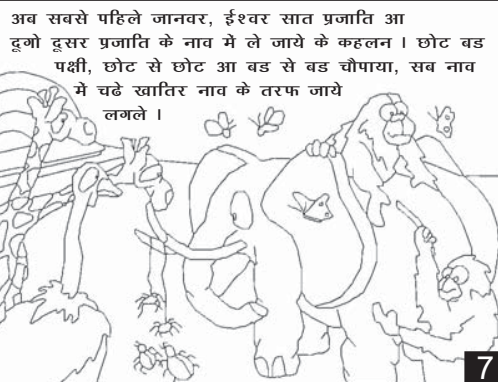 अब सबसे पहिले जानवर, ईश्वर सात प्रजाति आ
दूगो दूसर प्रजाति के नाव में ले जाये के कहलन । छोट बड
पक्षी, छोट से छोट आ बड से बड चौपाया, सब नाव
में चढे खातिर नाव के तरफ जाये
लगले ।
7